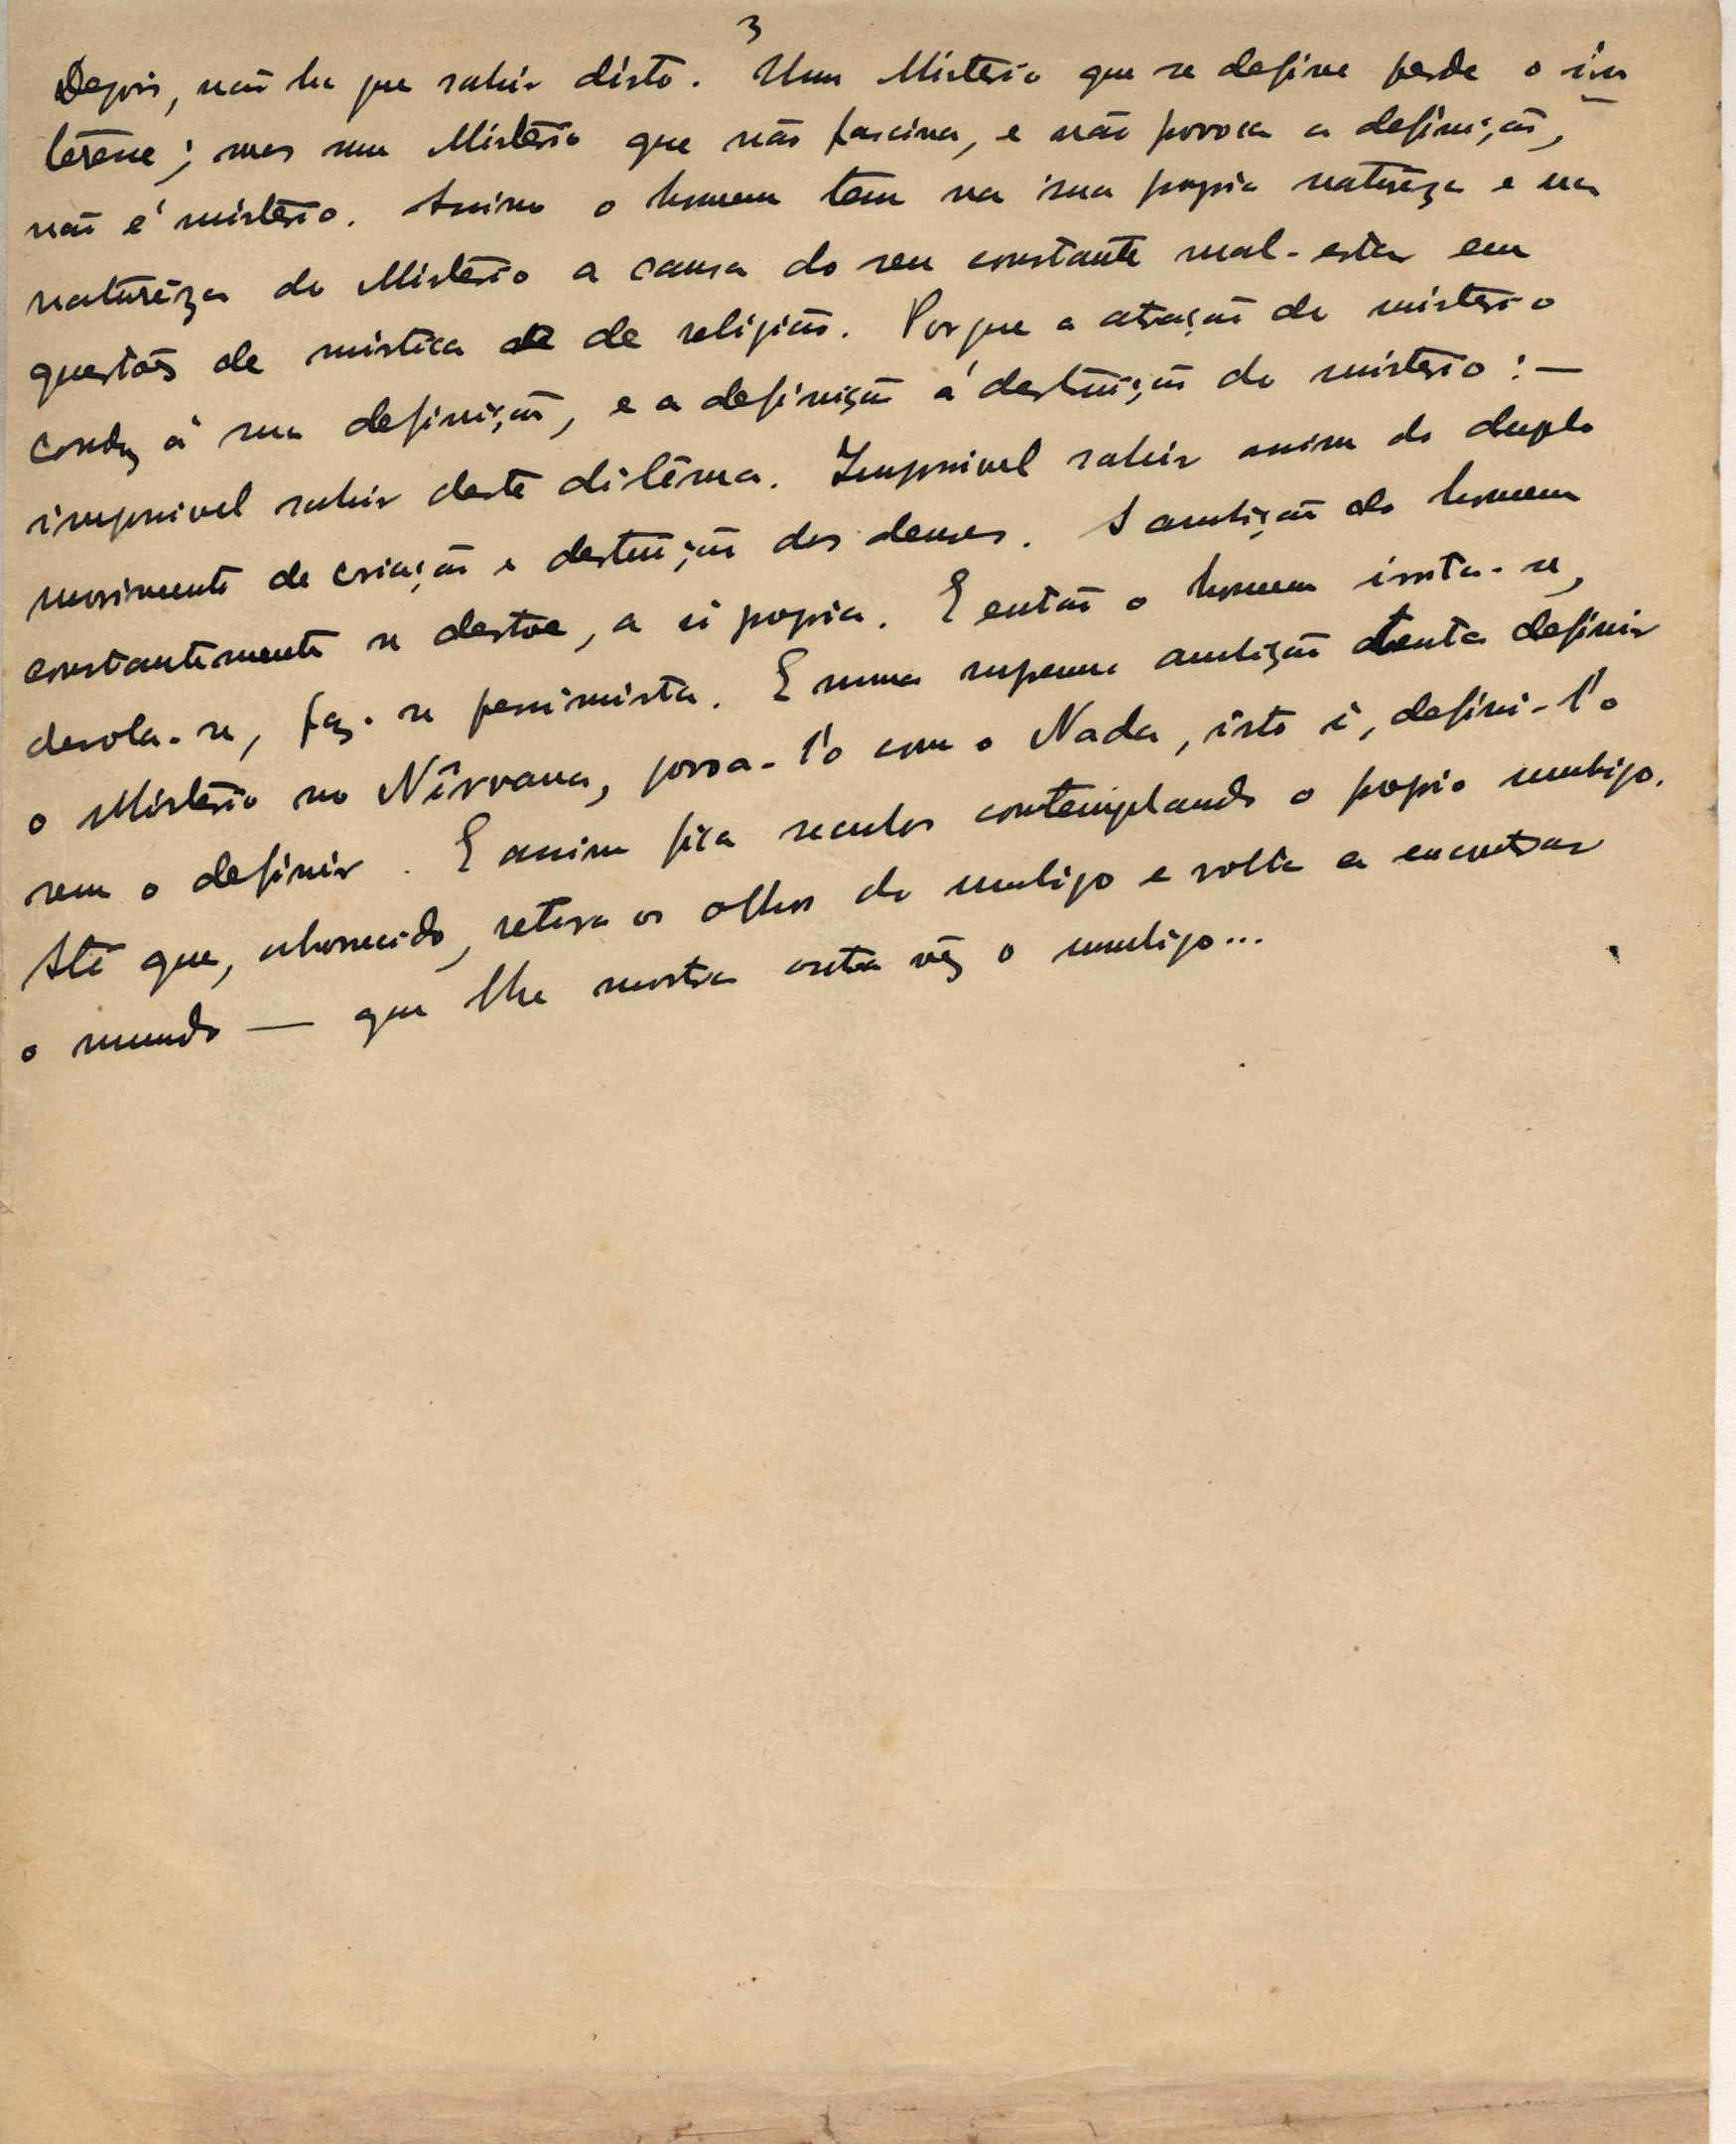 3
Depois, não ha que sahir disto. Um Misterio que se define perde o in
terêsse; mas um Mistério que não fascina, e não provoca a definição,
não é mistério. Assim o homem tem na sua propria naturêza e na
naturêza do Mistério a causa do seu constante mal-estar em
questões de mistica e de religião. Porque a atração do misterio
conduz á sua definição, e a definição á destruição do misterio: —
impossivel sahir deste dilêma. Impossivel sahir assim do duplo
movimento de criação e destruição dos deuses. A ambição do homem
constantemente se destroe, a si propria. E então o homem irrita-se,
desola-se, faz-se pessimista. E numa suprema ambição tenta definir
o Mistério no Nirvana, povoa-l'o com o Nada, isto é, defini-l'o
sem o definir. E assim fica seculos contemplando o proprio umbigo.
Até que, aborrecido, retira os olhos do umbigo e volta a encontrar
o mundo — que lhe mostra outra vêz o umbigo...